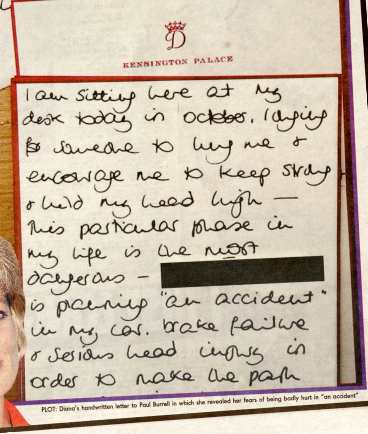 D
KENSINGTON PALACE
I am sitting here at my
desk today in october, longing
for someone to hug me &
encourage me to keep strong
& hold my head high —
This particular phase in
my life is the most
dangerous —
is planning "an accident"
in my car. brake failure
& serious head injury in
order to make the path
PLOT: Diana's handwritten letter to Paul Burrell in which she revealed her fears of being badly hurt in "an accident"